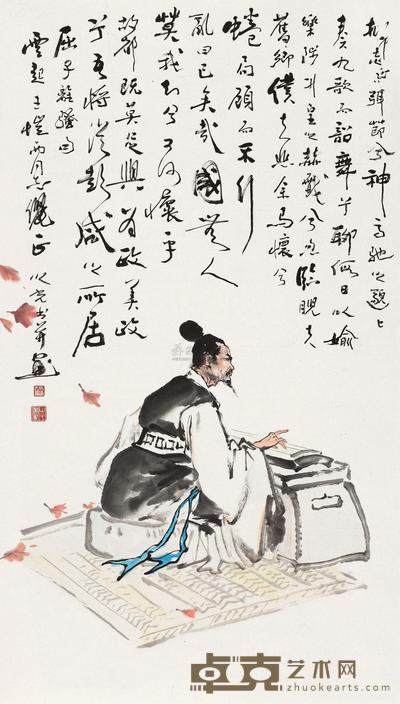 抑志而弭節兮神高馳之邈々
奏九歌而韶舞兮聊假日以媮
樂陟升皇之赫戲兮忽臨睨夫
舊鄉僕夫悲余馬懷兮
蜷局顧而不行
亂曰已矣哉國無人
莫我知兮又何懷乎
故都既莫足與為政美政
兮吾將從彭咸之所居
屈子離騷句
雲起王愷兩同志儷正
書並畫
卓克艺术网
www.zhuokearts.com